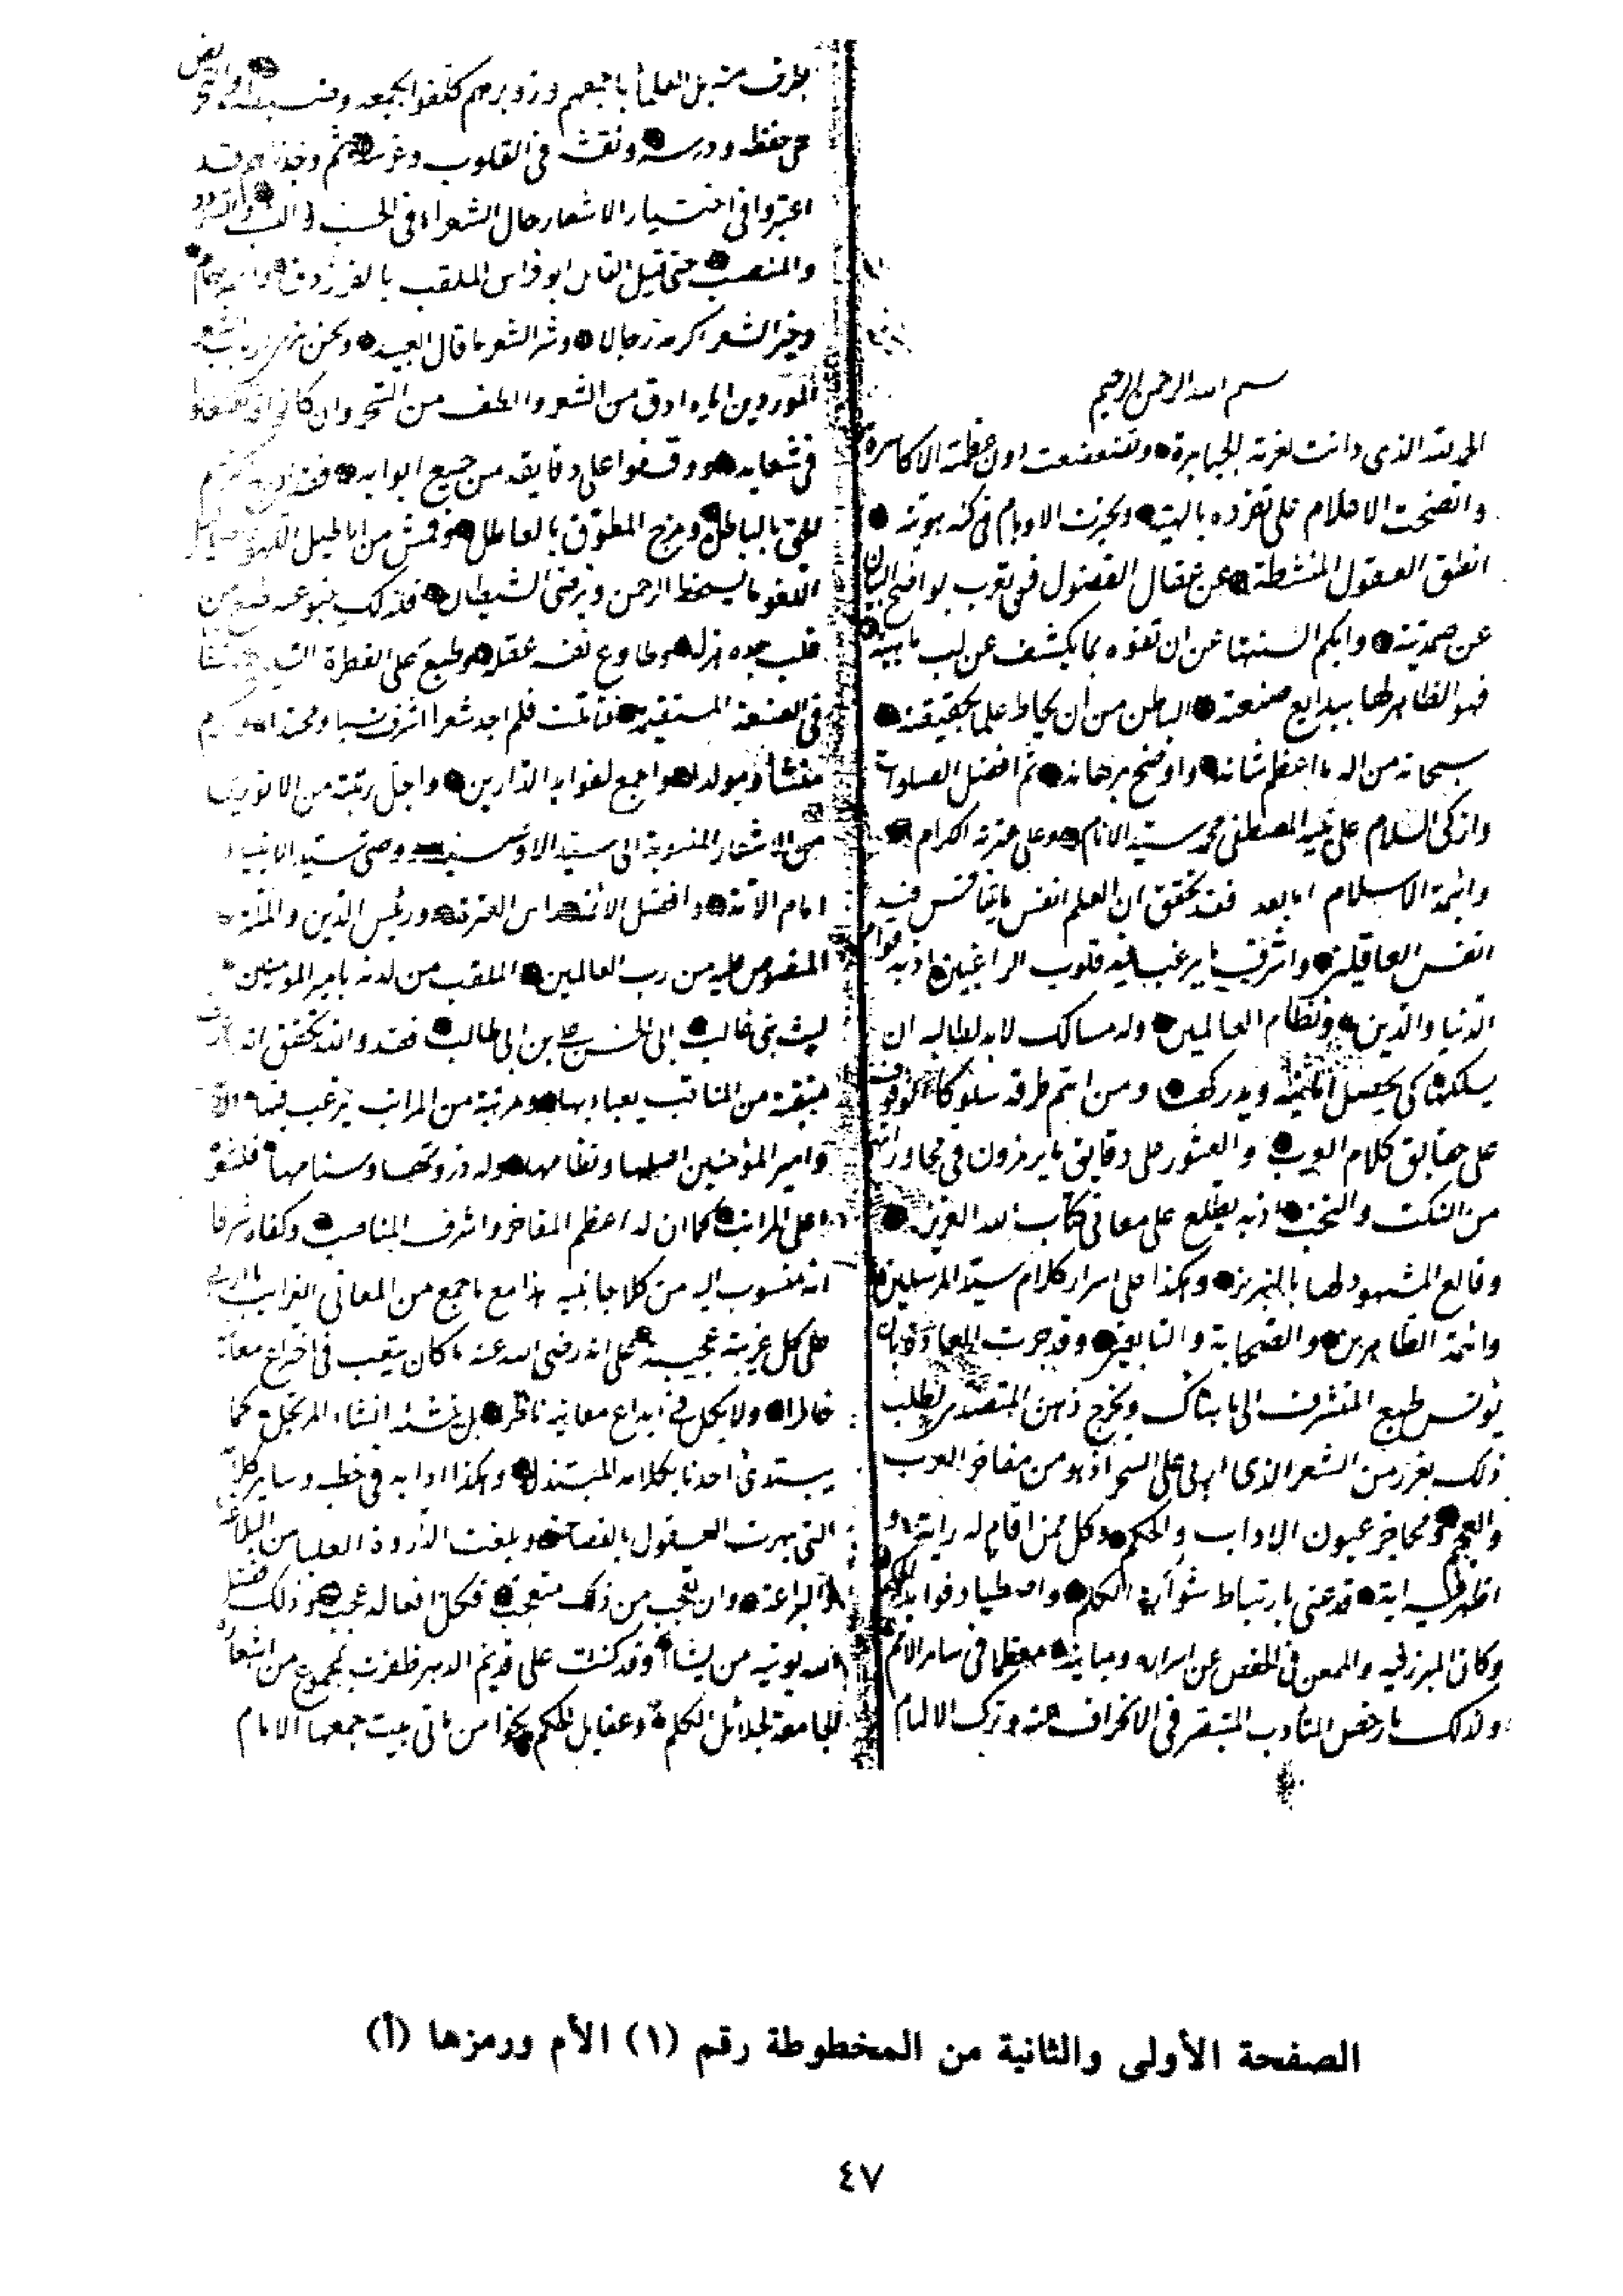 بسم الله الرحمن الرحيم
الحمد لله الذي دانت لعزته الجبابرة وتضعضعت دون عظمته الاكاسرة
واتضحت الاعلام على تفرده بالهيته وعجزت الاوهام في كنه هويته
انطق العقول المنشطة عن عقال الفضول في تعرب لوائح البيان
عن صمديته وابكم السنتها عن ان تفوه بما يكشف عن لب ماهيته
فهو الظاهر لها ببدايع صنعته الباطن من ان يحاط علما بحقيقته
سبحانه من اله ما اعظم شانه واوضح برهانه ثم افضل الصلوات
وازكى السلام على نبيه المصطفى محمد سيد الانام وعلى عترته الكرام
وائمة الاسلام اما بعد فقد تحقق ان العلم انفس ما يتنافس فيه
انفس العاقلين واشرف ما يرغب اليه قلوب الراغبين اذ به قوام
الدنيا والدين ونظام العالمين وله مسالك لابد لطالبه ان
يسلكها كي يحصل امنيته ويدركه ومن اهم طرقه سلوكا الوقوف
على حقايق كلام العرب والعثور على دقايق ما يرمزون في محاوراتهم
من النكت والنخب اذ به يطلع على معاني كتاب الله العزيز
وقايع المشهود لها بالتبريز وهكذا على اسرار كلام سيد المرسلين
وائمة الطاهرين والصحابة والتابعين وقد جرت العادة بان
يونس طبع المتشرف الى ما هناك ويخرج ذهن المتصدي لطلب
ذلك بغرر من الشعر الذي اربى على السحر اذ هو من مفاخر العرب
والعجم ومحاجر عيون الاداب والحكم وكل ممن اقام له راية او
اظهر فيه اية قد عنى بارتباط شوارد الكلم واصطياد فوايد الحكم
وكان المبرز فيه والممعن في الفحص عن اسراره ومبانيه معظما في ساير الامم
ولذلك ما رخص المتأدب المتبقر في الانحراف عنه وترك الالمام
بطرف من قبل العلماء باجمعهم
حفظه ودرسه ونقشه في القلوب وغرسه ثم وجدناهم قد
اعتبروا في اختيار الاشعار حال الشعراء في الحسب
والمنصب حتى قيل القائل ابو فراس الملقب بالفرزدق
وخير الشعر اكرمه رجالا وشر الشعر ما قال العبيد
ادق من الشعر والطف من السحر وان كانوا
في شعابه ووقفوا على دقايقه من جميع ابوابه
للحق بالباطل ومزج المطوق بالعاطل
اللغو ما يسخط الرحمن ويرضى الشيطان
قلب جده هزله وطاوع نفسه عقله وطبع على الفطرة
في الصنعة المستقيمة فتاملت فلم اجد شعرا اشرف نسبا ومحتدا
منشأ ومولدا واجمع لفوايد الدارين واجل رتبة من
من الاشعار المنسوبة الى سيد الاوصياء وصي سيد الانبياء
امام الائمة وافضل الامة راس العترة ورئيس الدين والملة
المنصوص عليه من رب العالمين الملقب من لدنه بامير المؤمنين
ليث بني غالب ابي الحسن علي بن ابي طالب فقد والله تحقق انه
منقبة من المناقب يعبا بها ومرتبة من المراتب يرغب فيها الا
وامير المؤمنين اصلها ونظامها وله ذروتها وسنامها
اعلى المراتب كما ان له اعظم المفاخر واشرف المناصب وكفاه شرفا
انه منسوب اليه من كلا جانبيه هذا مع ما جمع من المعاني الغرايب
على كل غريبة عجيبة على انه رضي الله عنه ما كان يتعب في اختراع معانيه
خاطرا ولا يكل في ابداع معانيه ناظرا بل ينشئه انشاء المرتجل كما
يبتدئ احدنا بكلامه المبتذل وهكذا دابه في خطبه وساير كلامه
التي بهرت العقول بالفصاحة وبلغت الذروة العليا من البلاغة
والبراعة وان تعجب من ذلك متعجب فكل افعاله عجب وذلك فضل
الله يوتيه من يشاء وقد كنت على قديم الدهر ظفرت بمجموع من اشعاره
الجامعة لجلائل الكلم وعقايل الحكم نحوا من مأتي بيت جمعها الامام
الصفحة الأولى والثانية من المخطوطة رقم (١) الأم ورمزها (أ)
٤٧